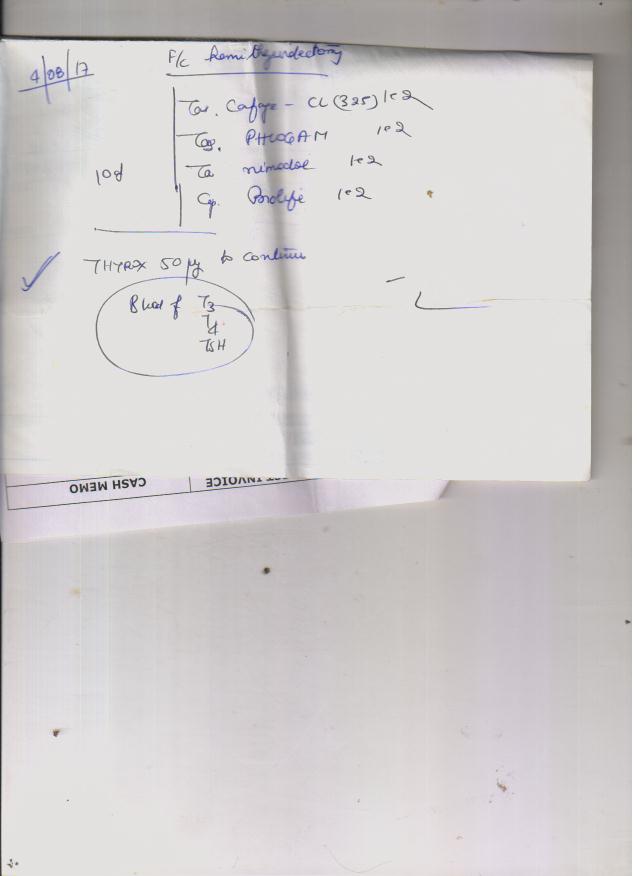 4/08/17
F/c hemithyroidectomy
Tab. Cafage - CL (325) 1e2
Tab. PHLOGAM 1e2
10d Ta nimodol 1e2
Cp. Prolife 1e2
THYROX 50 µg to continue
Blood f T3
T4
TSH
CASH MEMO
INVOICE